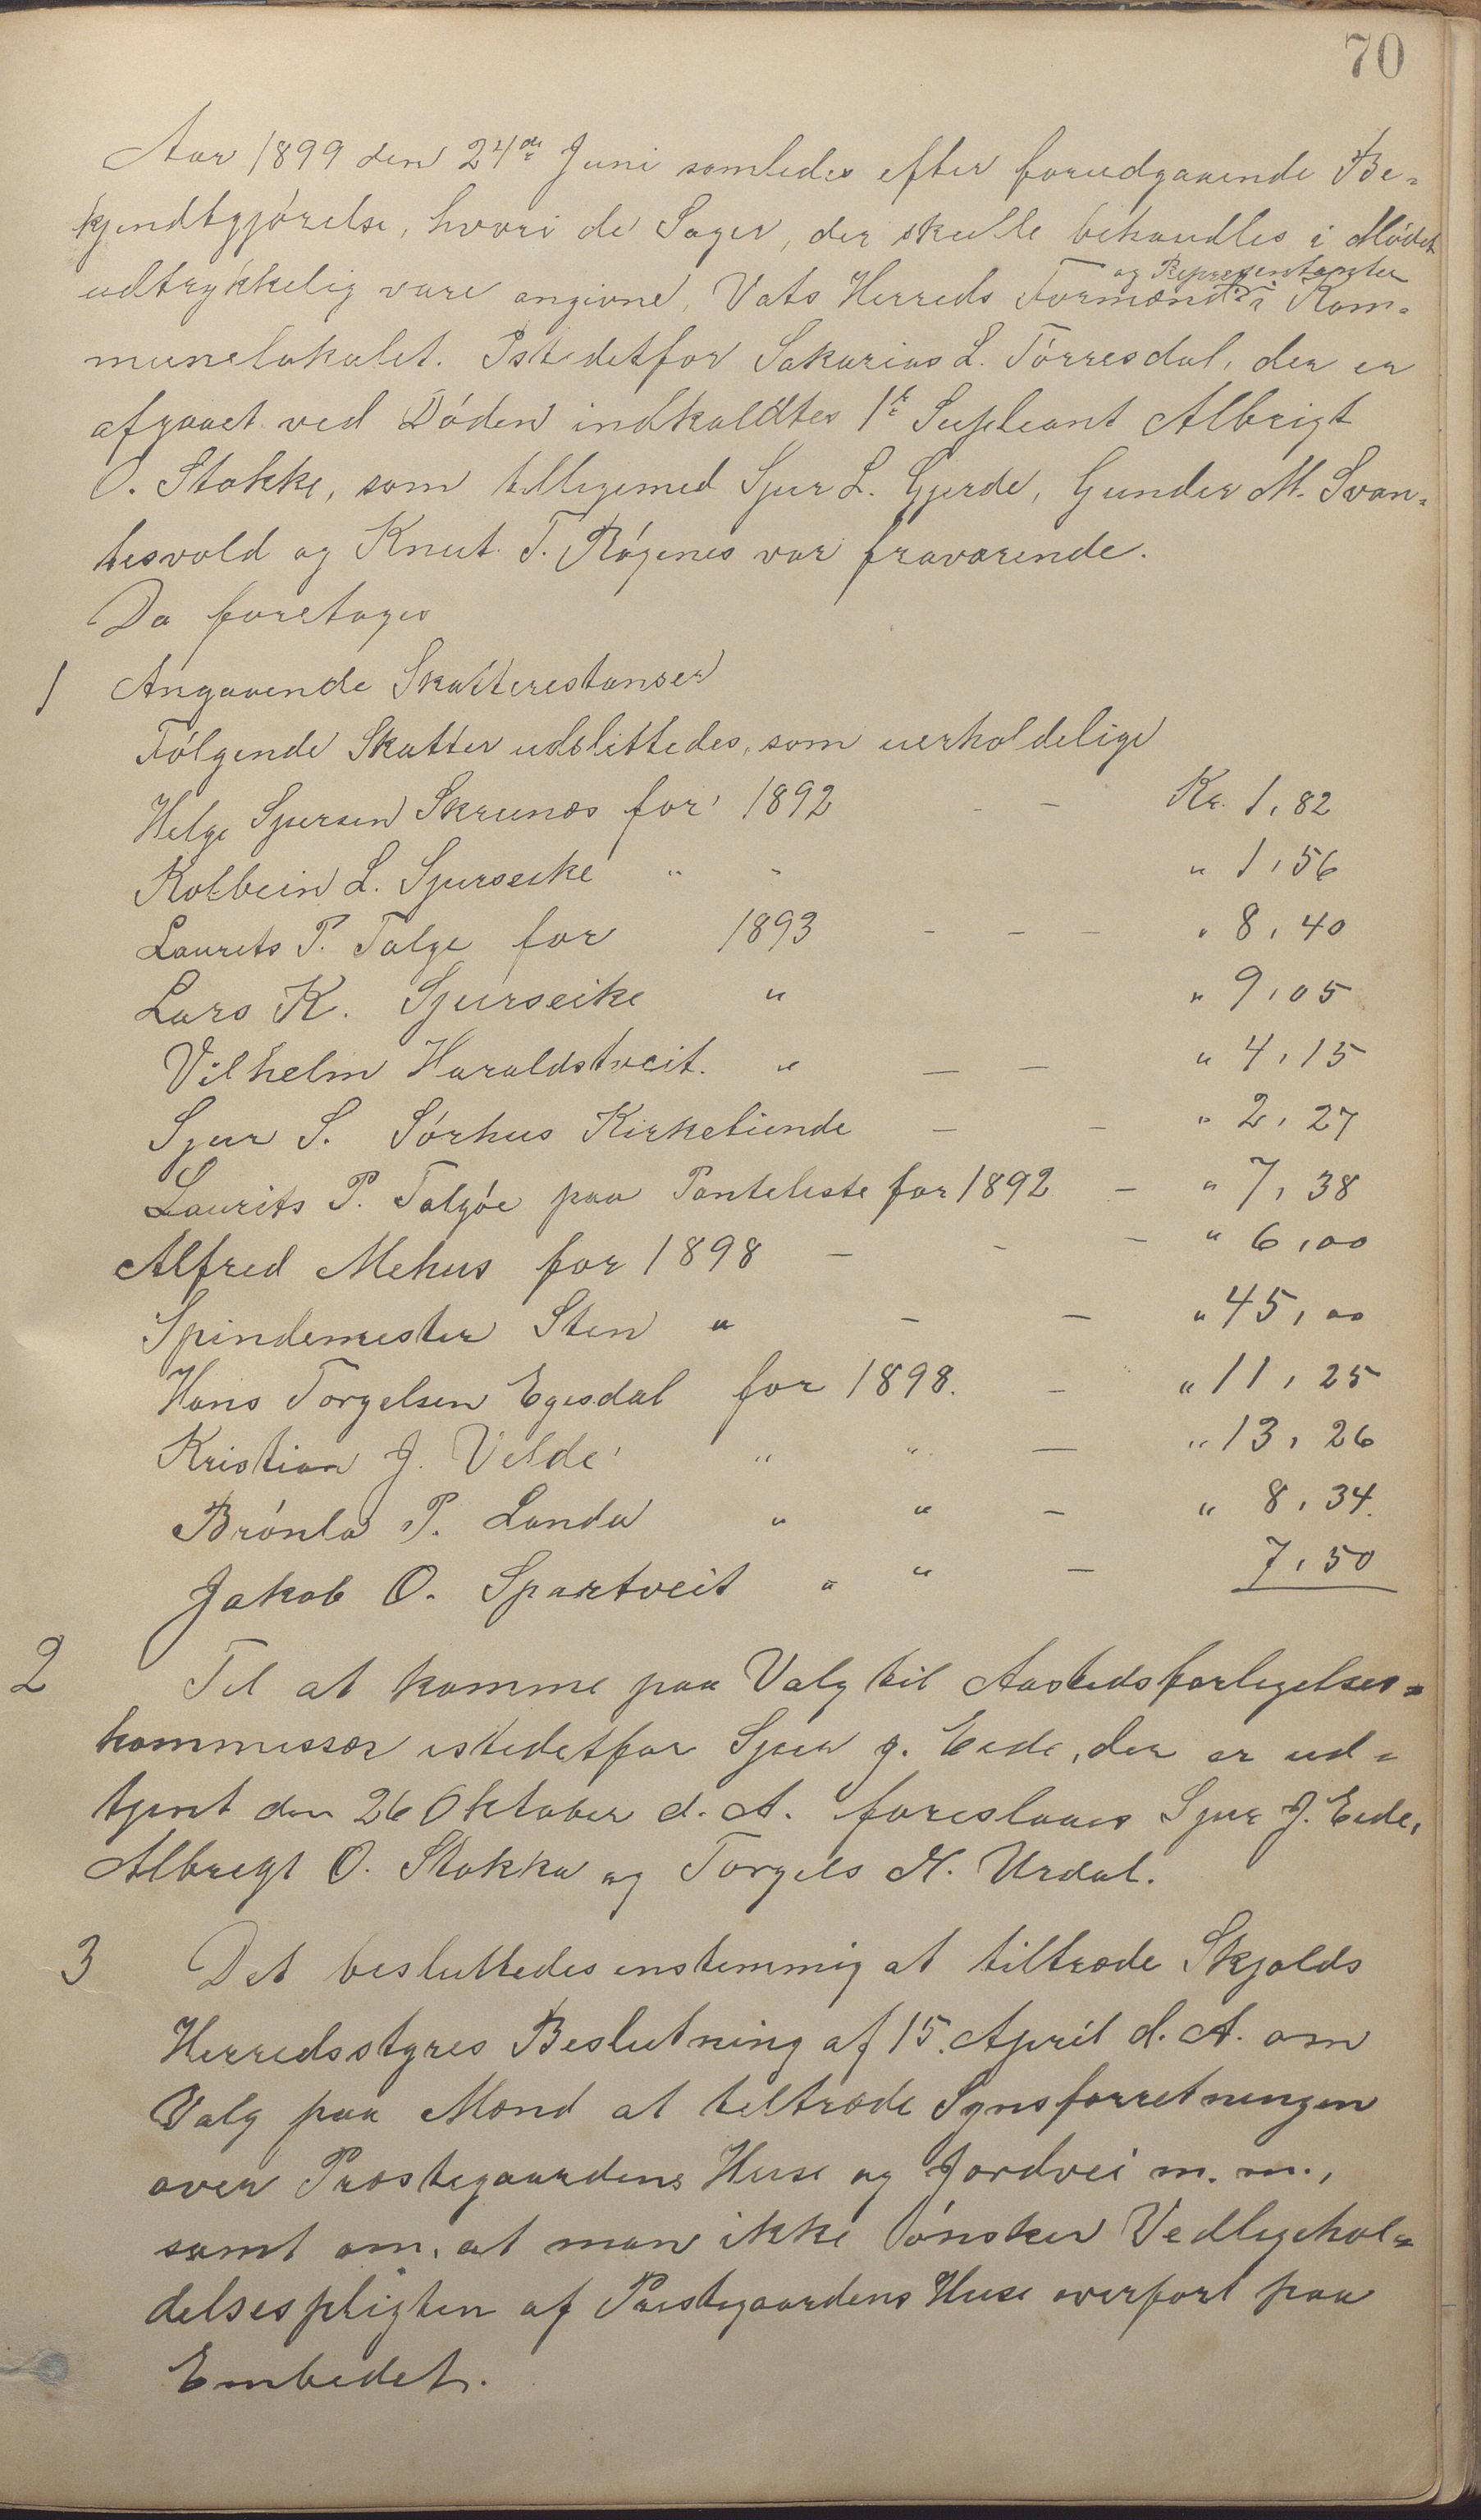 70
Aar 1899 den 24de Juni samledes efter forudgaaende Be=
kjendtgjórelse, hvori de Sager, der skulle behandles i Mödet
udtrykkelig vare angivne, Vats Herreds Formænd og Repræsentanter i Kom=
munelokalet. Istedetfor Sakarias L. Tórresdal, der er
afgaaet ved Dóden indkaldtes 1ste Supleant Albrigt
O. Stokke, som tilligemed Sjur L. Gjerde, Gunder M. Svan=
tesvold og Knut T. Rógenes var fraværende.
Da foretoges
1 Angaaende Skatterestanser
Fólgende Skatter udslettedes, som uerholdelige
Helge Sjursen Skrunes for 1892 - - Kr. 1,82
Kolbein L. Sjurseike " - " 1,56
Laurits P. Talge for 1893 - - - " 8,40
Lars K. Sjurseike " " 9,05
Vilhelm Haraldstveit. " - - " 4,15
Sjur S. Sórhus Kirketiende - - " 2,27
Laurits P. Talgóe paa Panteliste for 1892 - " 7,38
Alfred Mehus for 1898 - - - " 6,00
Spindemester Sten " - - " 45,00
Hans Torgelsen Egesdal for 1898. - " 11,25
Kristian J. Velde " " - " 13,26
Brónla P. Landa " " - " 8,34.
Jakob O. Spartveit " " - 7,50
2 Til at komme paa Valg til Aastedsforligelses=
kommissær istedetfor Sjur J. Eide, der er ud=
tjent den 26 Oktober d. A. foreslaaes Sjur J. Eide,
Albregt O. Stokka og Torgels N. Urdal.
3 Det besluttedes enstemmig at tiltræde Skjolds
Herredsstyres Beslutning af 15. April d. A. om
Valg paa Mænd at tiltræde Synsforretningen
over Præstegaardens Huse og Jordvei m. m.,
samt om, at man ikke ónsker Vedligehol=
delsespligten af Præstegaardens Huse overfort paa
Embedet.